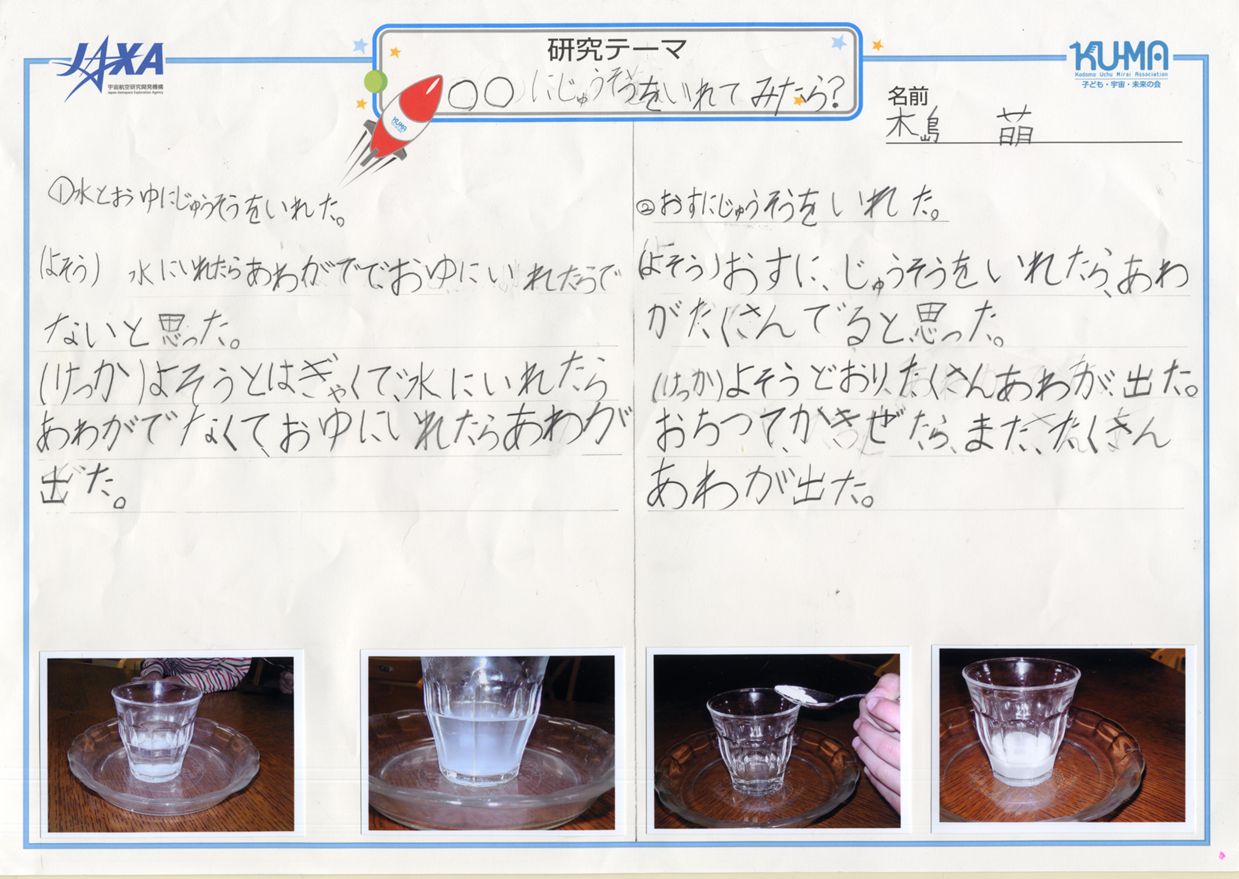 JAXA
宇宙航空研究開発機構
Japan Aerospace Exploration Agency
研究テーマ
○○にじゅうそうをいれてみたら?
KUMA
KUMA
Kodomo Uchu Mirai Association
子ども・宇宙・未来の会
名前
木島 萌
①水とおゆにじゅうそうをいれた。
(よそう) 水にいれたらあわがでで、おゆにいれたらで
ないと思った。
(けっか)よそうとはぎゃくで、水にいれたら
あわがでなくておゆにいれたらあわが
出た。
②おすにじゅうそうをいれた。
(よそう)おすに、じゅうそうをいれたら、あわ
がたくさんでると思った。
(けっか)よそうどおり、たくさんあわが、出た。
おちつてかきぜたら、また、たくさん
あわが出た。